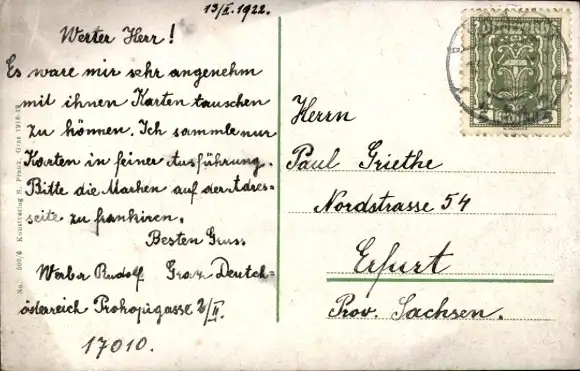 13/X. 1922.
Werter Herr!
Es ware mir sehr angenehm
mit ihnen Karten tauschen
zu können. Ich sammle nur
Karten in feiner Ausführung.
Bitte die Marken auf der Adres=
seite zu frankiren.
Besten Gruss
Rudolf Graz Deutch=
österreich Prohopigasse 2/II.
17010.
No. 500/6 Kunstverlag S. Frank, Graz 1918-19
5 5
Herrn
Paul Griethe
Nordstrasse 54
Erfurt
Prov. Sachsen.